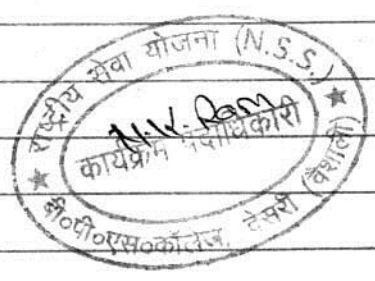 राष्ट्रीय सेवा योजना (N.S.S.)
N.K. Ram
कार्यक्रम पदाधिकारी
बी०पी०एस०कॉलेज, देसरी (वैशाली)